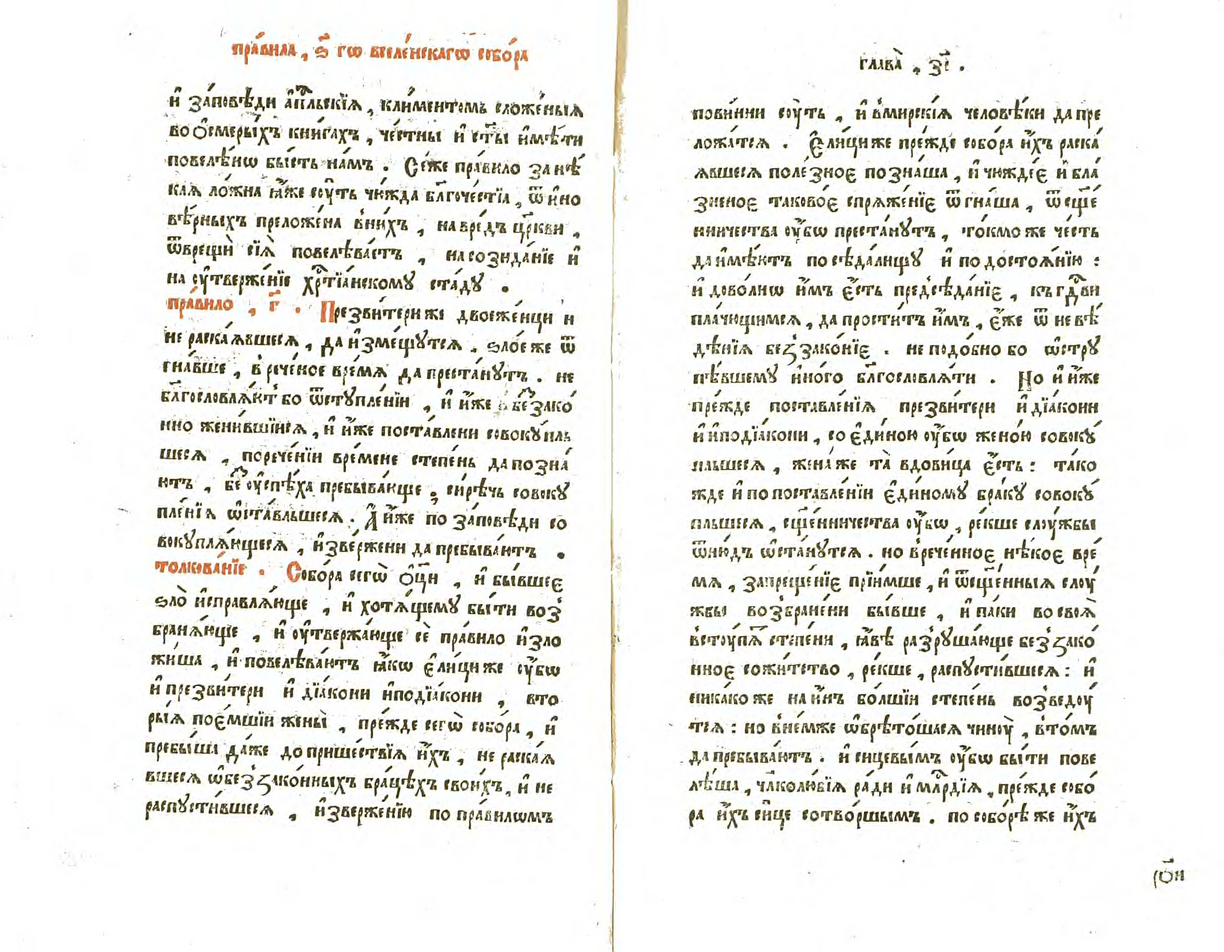 пра́вила , ѕ҃ гѡ вселе́нскагѡ собо́ра
и҆ за́повѣди а҆пⷭ҇льскїѧ , кли́ментомъ сложе́ныѧ
во ѻ҆смеры́хъ книгахъ , че́стны и҆ ст҃ы и҆мѣ́ти
повелѣ́нѡ бы́сть на́мъ . Се́же пра́вило за нѣ́
каѧ ло́жна ꙗ҆́же сꙋ́ть чю́жда бл҃гоче́стїѧ , ѿ и҆но
вѣ́рныхъ преложе́на в̾ни́хъ , на вре́дъ цр҃кви ,
ѿврещѝ сїѧ̀ повелѣва́етъ , на созида́нїе и҆
на ᲂу҆твержє́нїе хрⷭ҇тїа́нскомꙋ ста́дꙋ .
пра́вило , г҃ . Презви́тери же двоеже́нци и҆
не раска́ѧвшесѧ , да и҆зме́щꙋтсѧ . ѕло́е же ѿ
гна́вше , в̾рече́ное вре́мѧ да преста́нꙋтъ . не
бл҃гословлѧ́ютбо ѿстꙋпле́нїи , и҆ и҆́же без̾ако́
нно жени́вшїисѧ , и҆ и҆́же поста́влени совокꙋ́пль
шесѧ , по рече́нїи вре́мене сте́пень да позна́
ютъ , без̾ᲂу҆спѣ́ха пребыва́юще , си́рѣчь совокꙋ
пле́нїѧ ѡ҆ста́вльшесѧ . А҆ и҆́же по за́повѣди со
вокꙋплѧ́ющесѧ , и҆зве́ржени да пребыва́ютъ .
толкова́нїе . Собо́ра сегѡ̀ ѻ҆ц҃ы , и҆ бы́вшее
ѕло̀ и҆справлѧ́юще , и҆ хотѧ́щемꙋ бы́ти воз̾
бранѧ́юще , и҆ ᲂу҆твержа́юще сѐ пра́вило и҆зло
жи́ша , и҆ повелѣва́ютъ ꙗ҆́кѡ є҆ли́цы же ᲂу҆́бѡ
и҆ презви́тери и҆ дїа́кони и҆подїа́кони , вто
ры́ѧ пое́мшїи жены̀ , пре́жде сегѡ̀ собо́ра , и҆
пребы́ша да́же до прише́ствїѧ и҆́хъ , не раска́ѧ
вшесѧ ѡ҆ без̾зако́нныхъ бра́цѣхъ свои́хъ , и҆ не
распꙋсти́вшесѧ , и҆зверже́нїю по пра́вилѡмъ
глава̀ , з҃і .
пови́нни сꙋ́ть , и҆ в̾мирскі́ѧ человѣ́ки да пре
ложа́тсѧ . Є҆ли́цы же пре́жде собо́ра и҆́хъ раска́
ѧвшесѧ поле́зное позна́ша , и҆ чюжде́е и҆ бла́
зненое таково́е спрѧже́нїе ѿгна́ша , ѿ сще́
нничества ᲂу҆́бѡ преста́нꙋтъ , то́кмо же че́сть
да и҆мѣ́ютъ по сѣда́лищꙋ и҆ по достоѧ́нїю :
и҆ дово́лнѡ и҆́мъ є҆́сть предсѣда́нїе , къ гдⷭ҇ви
пла́чющимсѧ , да прости́тъ и҆́мъ , є҆́же ѿ невѣ́
дѣнїѧ без̾зако́нїе . не подо́бно бо ѡ҆стрꙋ
пѣ́вшемꙋ и҆но́го бл҃гословлѧ́ти . Но и҆ и҆́же
пре́жде поставле́нїѧ презви́тери и҆ дїа́кони
и҆ и҆подїа́кони , со є҆ди́ною ᲂу҆́бѡ жено́ю совокꙋ́
пльшесѧ , жена́ же та̀ вдови́ца є҆́сть : тако́
жде и҆ по поставле́нїи є҆ди́номꙋ бра́кꙋ совокꙋ́
пльшесѧ , сщ҃е́нничества ᲂу҆́бѡ , ре́кше слꙋ́жбы
ѿню́дъ ѡ҆ста́нꙋтсѧ . но в̾рече́нное нѣ́кое вре́
мѧ , запреще́нїе прїи́мше , и҆ ѿ сще́нныѧ слꙋ́
жбы возбране́ни бы́вше , и҆ па́ки во своѧ̀
встꙋ́пѧтъ сте́пени , ꙗ҆́вѣ разрꙋша́юще без̾зако́
нное сожи́тство , ре́кше , распꙋсти́вшесѧ : и҆
ника́ко же на и҆́нъ бо́лшїи сте́пень возведꙋ́
тсѧ : но в̾не́мже ѡ҆брѣто́шасѧ чинꙋ̀ , в̾то́мъ
да пребыва́ютъ . и҆ сицевы́мъ ᲂу҆́бѡ бы́ти пове
лѣ́ша , чл҃колю́бїѧ ра́ди и҆ млⷭ҇рдїѧ , пре́жде собо́
ра и҆́хъ си́це сотво́ршымъ . по собо́рѣ же и҆́хъ